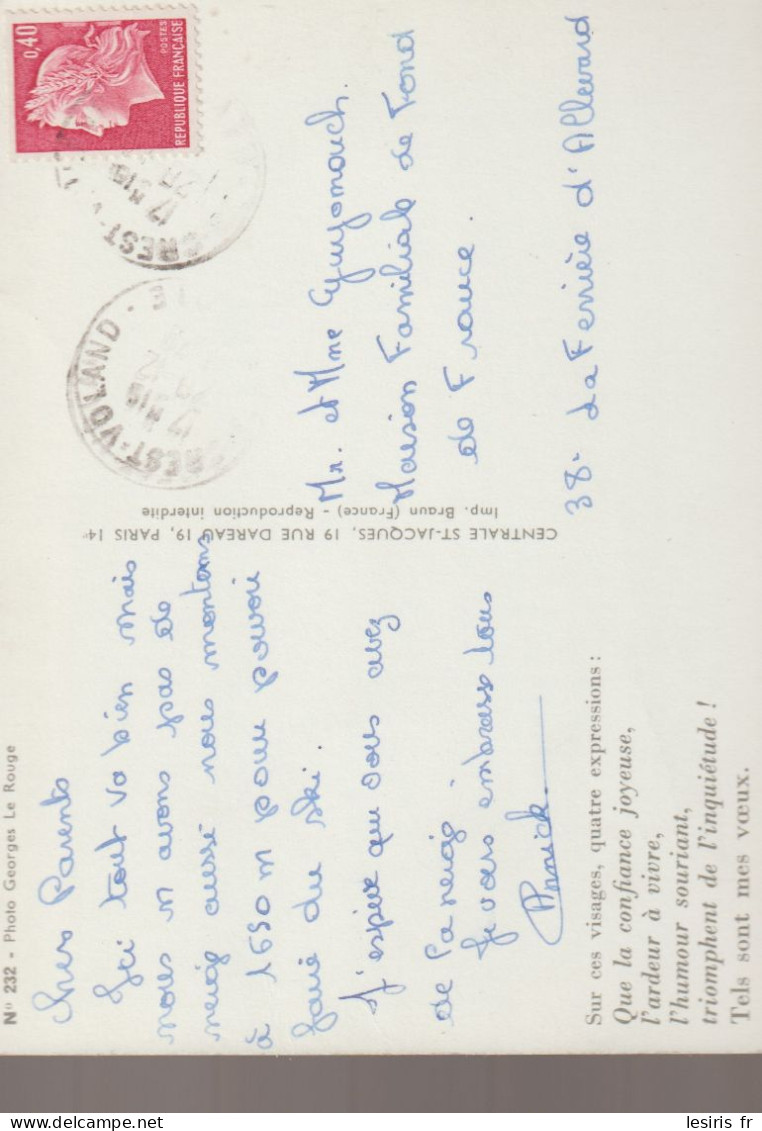 Nº 232 - Photo Georges Le Rouge
Chers Parents
Ici tout va bien mais
nous n avons pas de
neige aussi nous montons
à 1650 m pour pouvoir
faire du ski.
J'espère que vous avez
de la neige
Je vous embrasse tous
Annick
Sur ces visages, quatre expressions :
Que la confiance joyeuse,
l'ardeur à vivre,
l'humour souriant,
triomphent de l'inquiétude !
Tels sont mes vœux.
CENTRALE ST-JACQUES, 19 RUE DAREAU 19, PARIS 14e
Imp. Braun (France) - Reproduction interdite
0,40
POSTES
REPUBLIQUE FRANÇAISE
CREST-V
17 H15
CREST-VOLAND
17 H15
Mr. et Mme Guyomarch.
Maison Familiale de Fond
de France.
38 - La Ferrière d'Allevard
lesiris fr